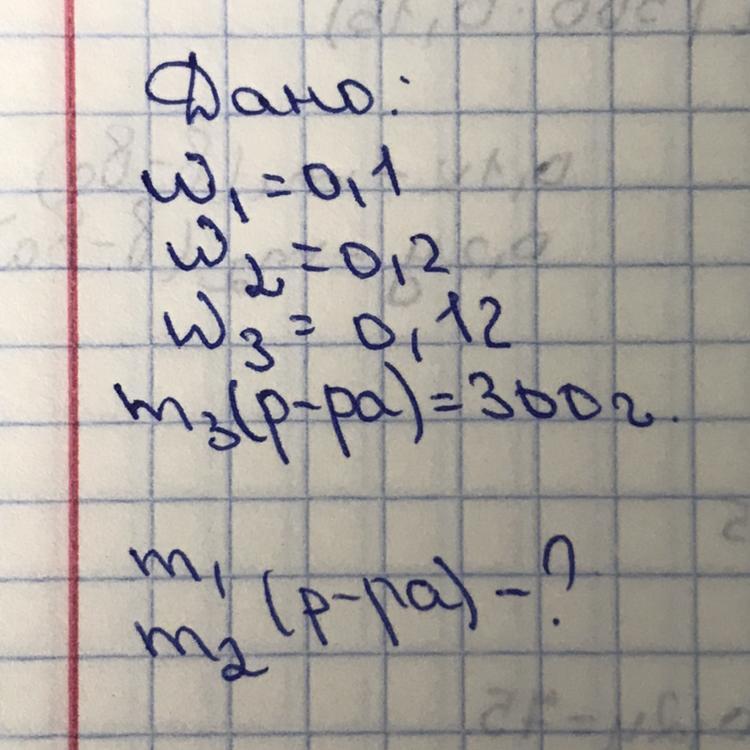 Дано:
w₁=0,1
w₂=0,2
w₃=0,12
m₃(р-ра)=300г.
m₁
m₂ (р-ра)-?